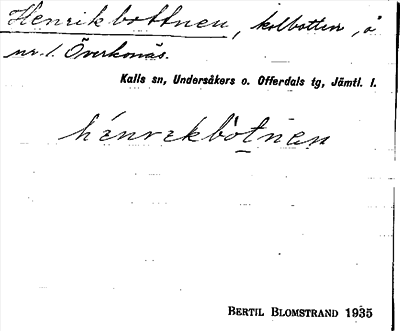 Henrikbottnen, kolbotten, å
nr. 1 Överkonäs.
Kalls sn, Undersåkers o. Offerdals tg, Jämtl. l.
hénrekbòtnen
BERTIL BLOMSTRAND 1935